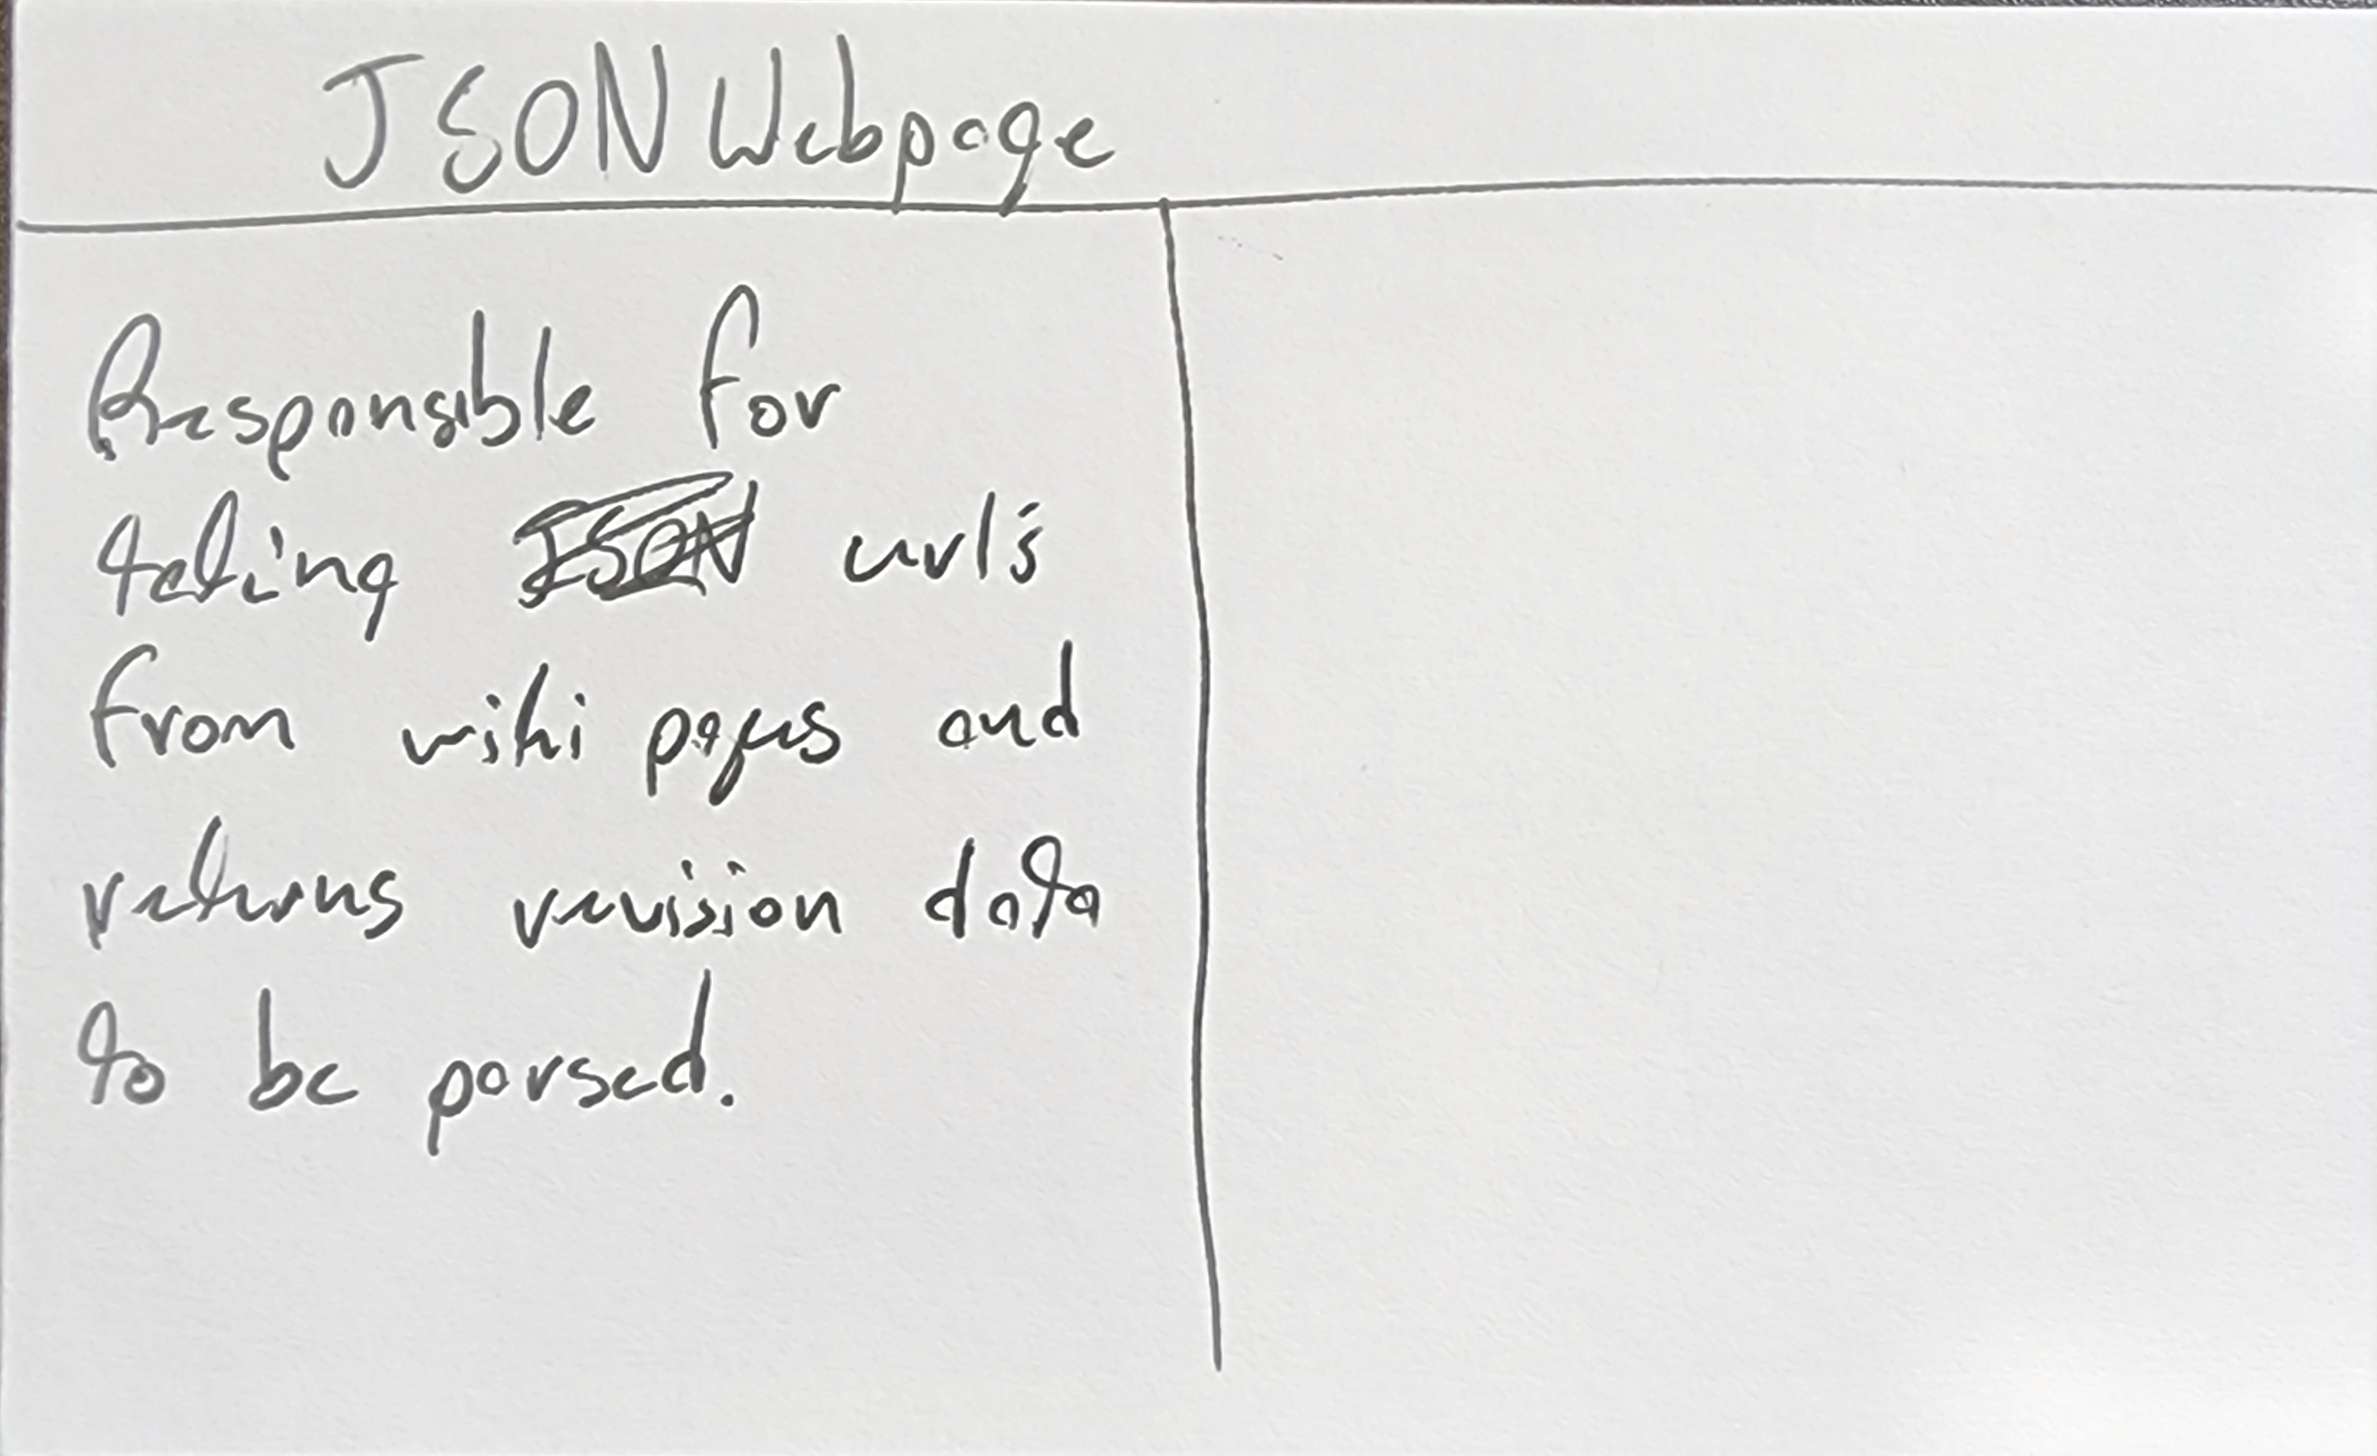 JSON Webpage
Responsible for
taking JSON url's
from wiki pages and
returns revision data
to be parsed.